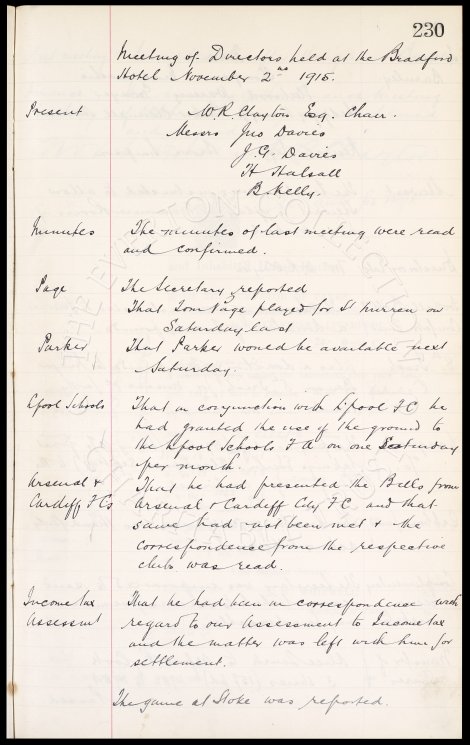 230
Meeting of Directors held at the Bradford
Hotel November 2nd 1915.
Present W R Clayton Esq. Chair.
Messrs Jno Davies
J. G. Davies
H Halsall
B. Kelly.
Minutes The minutes of last meeting were read
and confirmed.
Page The Secretary reported
That Tom Page played for St Mirren on
Saturday last
Parker That Parker would be available next
Saturday.
Lpool Schools That in conjunction with Lpool FC he
had granted the use of the ground to
the Lpool Schools F A on one Saturday
per month.
Arsenal & That he had presented the Bills from
Cardiff FCs Arsenal & Cardiff City FC and that
same had not been met & the
correspondence from the respective
clubs was read.
Income tax That he had been in correspondence with
Assessmt regard to our Assessment to Income tax
and the matter was left with him for
settlement.
The game at Stoke was reported.